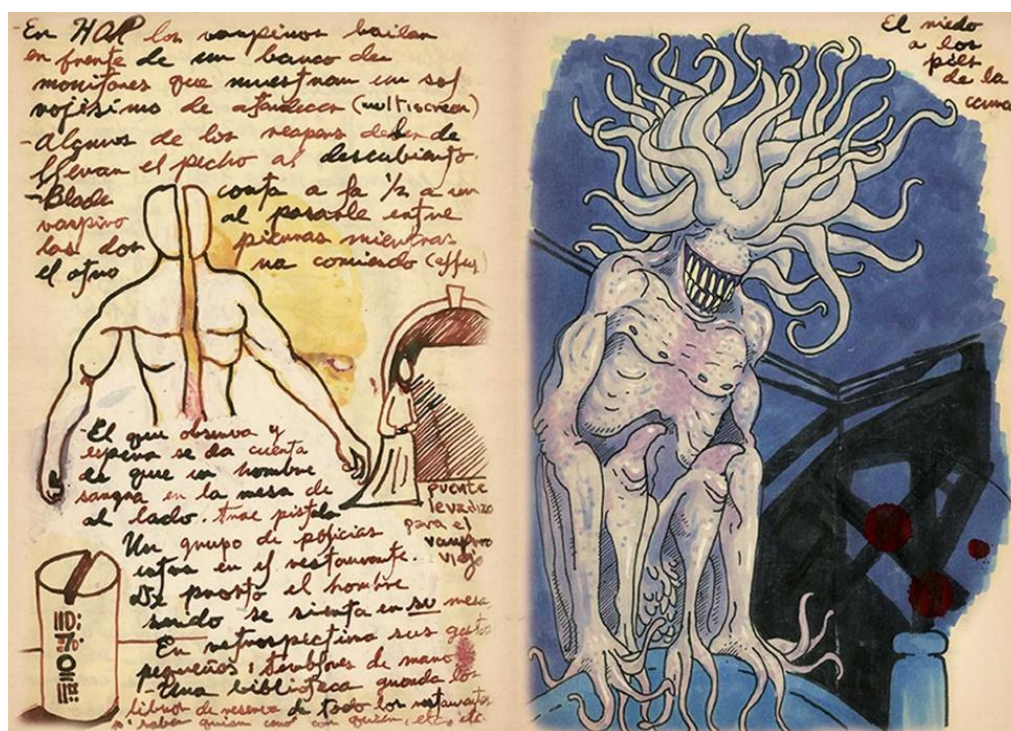 -En HOP los vampiros bailan
en frente de un banco de
monitores que muestran un sol
rojísimo de atardecer (multiscreen)
-Algunos de los reapers deben de
llevan el pecho al descubierto.
-Blade corta a la 1/2 a un
vampiro al pasarle entre
las dos piernas mientras
el otro va corriendo (effex)
-El que observa y
espera se da cuenta
de que un hombre
sangra en la mesa de
al lado. Trae pistola
Un grupo de policías
estas en el restaurante.
De pronto el hombre
herido se sienta en su mesa
En retrospectiva sus gestos
pequeños: temblores de mano
-Una biblioteca guarda los
libros de reserva de todo los restaurantes
saber quien ceno con quien, etc, etc.
puente
levadizo
para el
vampiro
viejo
El miedo
a los
pies
de la
cama